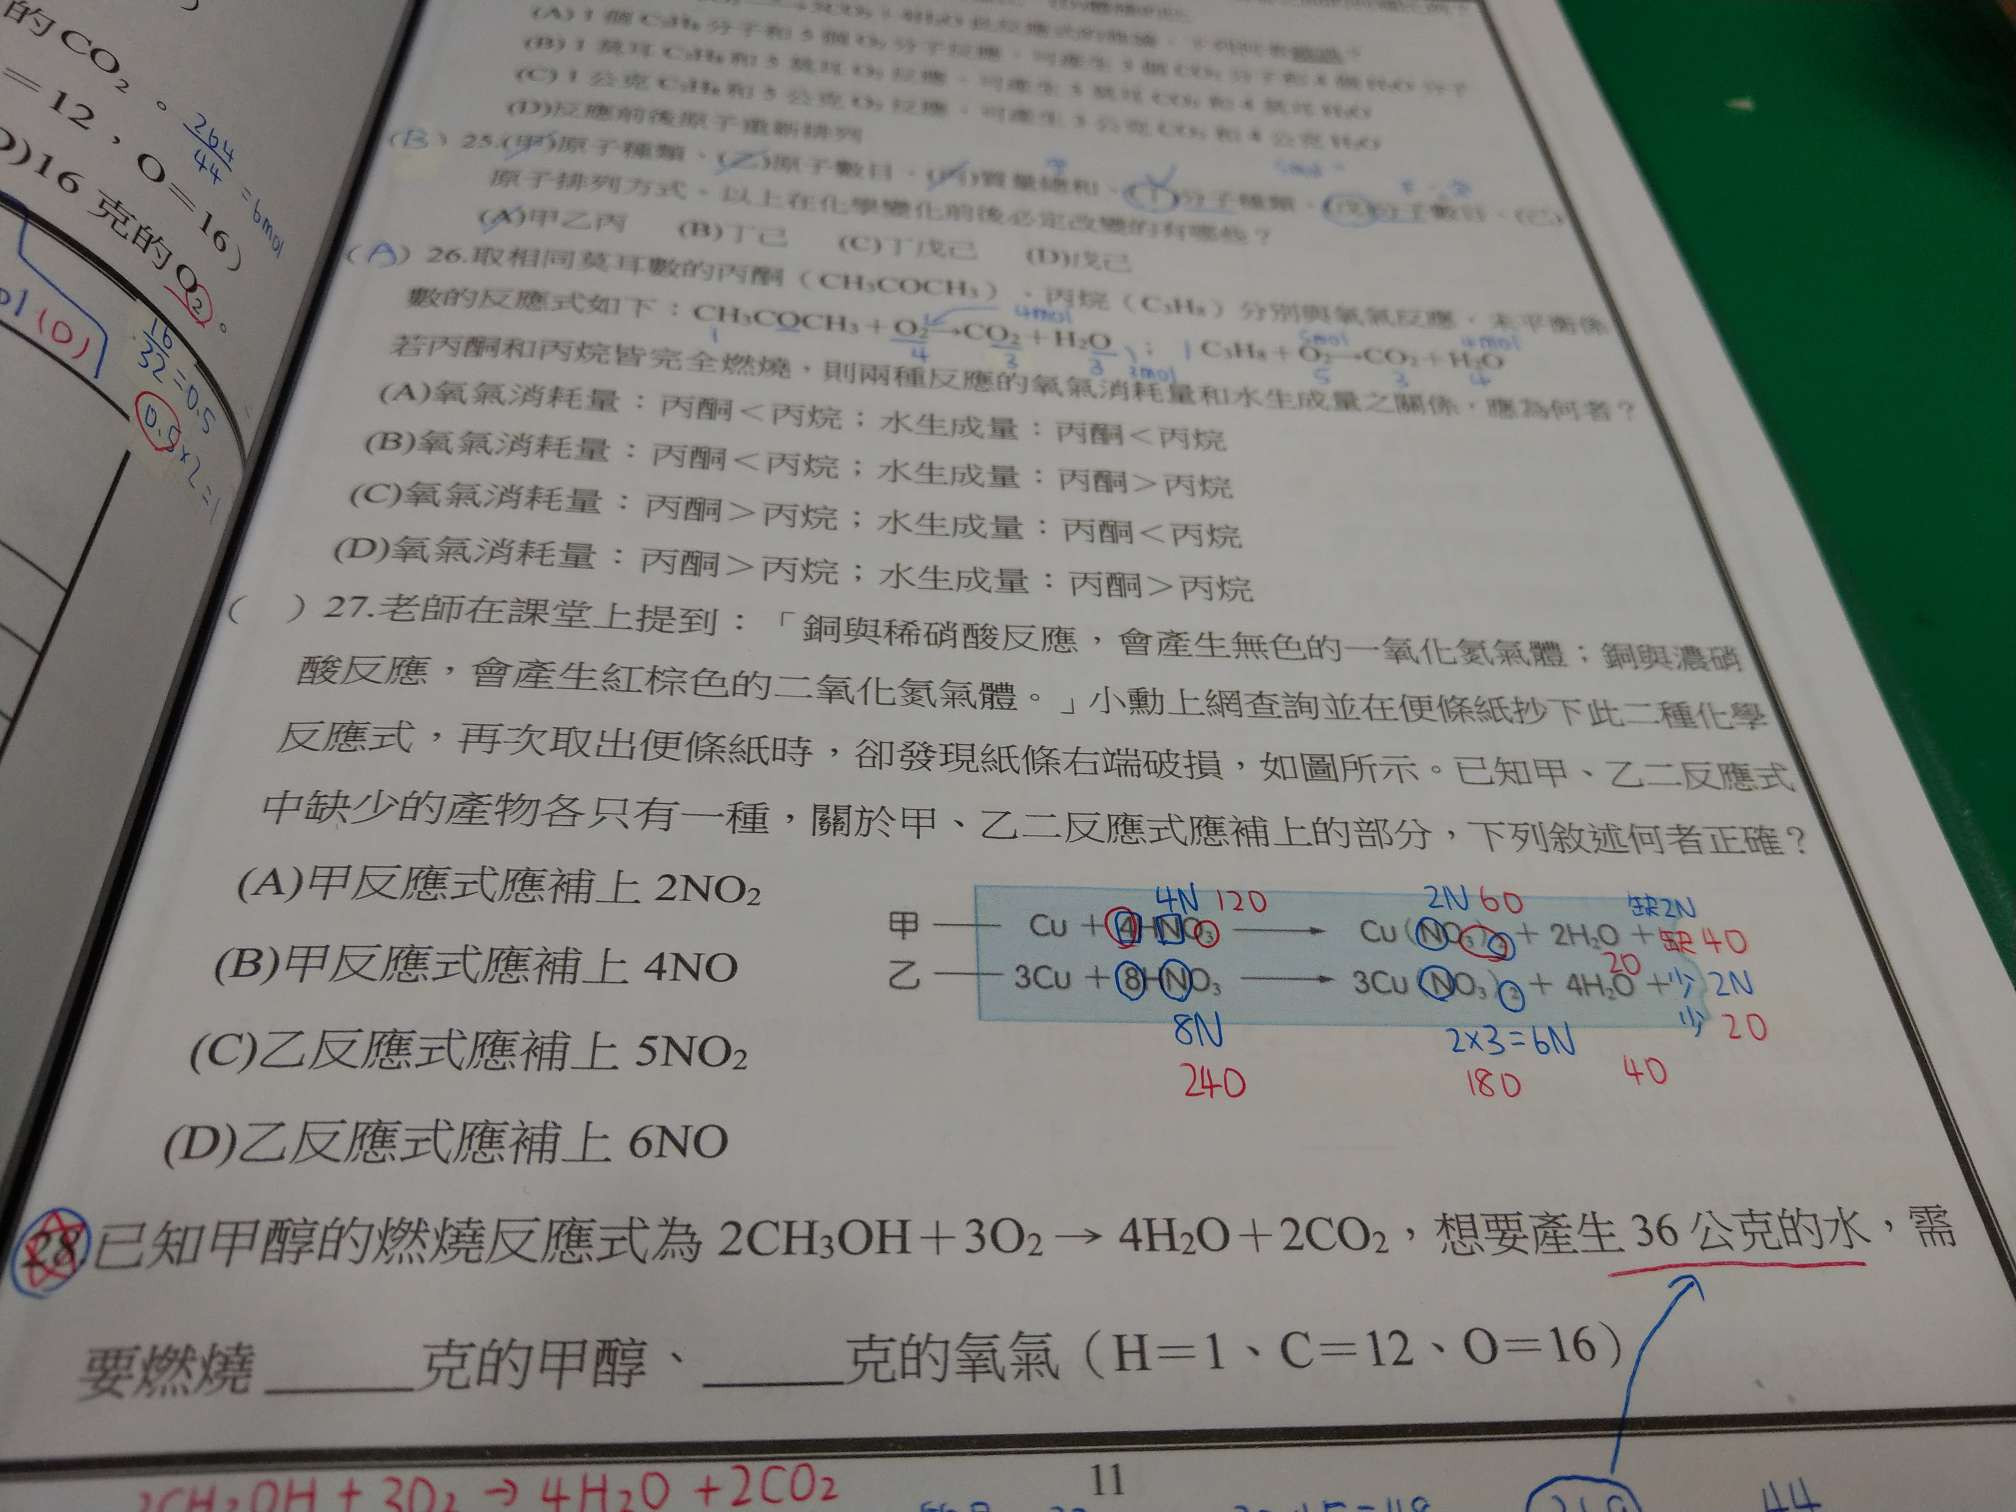 的CO₂。
264/44=6mol
=12,O=16)
D)16克的O₂。
16/32=0.5
0.5×2=1
(A)1個C₃H₈分子和5個O₂分子反應,可產生3個CO₂分子和4個H₂O分子
(B)1莫耳C₃H₈和5莫耳O₂反應,可產生3莫耳CO₂和4莫耳H₂O
(C)1公克C₃H₈和5公克O₂反應,可產生3公克CO₂和4公克H₂O
(D)反應前後原子重新排列
(B)25.(甲)原子種類、(乙)原子數目、(丙)質量總和、(丁)分子種類、(戊)分子數目、(己)
原子排列方式。以上在化學變化前後必定改變的有哪些?
(A)甲乙丙 (B)丁己 (C)丁戊己 (D)戊己
(A)26.取相同莫耳數的丙酮(CH₃COCH₃)、丙烷(C₃H₈)分別與氧氣反應,未平衡係
數的反應式如下:CH₃COCH₃+O₂→CO₂+H₂O;C₃H₈+O₂→CO₂+H₂O
1 4 3 3 4mol 3mol 1 5mol 5 3 4 4mol
若丙酮和丙烷皆完全燃燒,則兩種反應的氧氣消耗量和水生成量之關係,應為何者?
(A)氧氣消耗量:丙酮<丙烷;水生成量:丙酮<丙烷
(B)氧氣消耗量:丙酮<丙烷;水生成量:丙酮>丙烷
(C)氧氣消耗量:丙酮>丙烷;水生成量:丙酮<丙烷
(D)氧氣消耗量:丙酮>丙烷;水生成量:丙酮>丙烷
( )27.老師在課堂上提到:「銅與稀硝酸反應,會產生無色的一氧化氮氣體;銅與濃硝
酸反應,會產生紅棕色的二氧化氮氣體。」小勳上網查詢並在便條紙抄下此二種化學
反應式,再次取出便條紙時,卻發現紙條右端破損,如圖所示。已知甲、乙二反應式
中缺少的產物各只有一種,關於甲、乙二反應式應補上的部分,下列敘述何者正確?
(A)甲反應式應補上2NO₂
(B)甲反應式應補上4NO
(C)乙反應式應補上5NO₂
(D)乙反應式應補上6NO
4N 12O 2N 6O 缺2N
甲 Cu+4HNO₃→Cu(NO₃)₂+2H₂O+缺4O
2O
乙 3Cu+8HNO₃→3Cu(NO₃)₂+4H₂O+少2N
少2O
8N 2×3=6N
24O 18O 4O
28.已知甲醇的燃燒反應式為2CH₃OH+3O₂→4H₂O+2CO₂,想要產生36公克的水,需
要燃燒_____克的甲醇、_____克的氧氣(H=1、C=12、O=16)
11
2CH₃OH+3O₂→4H₂O+2CO₂
44